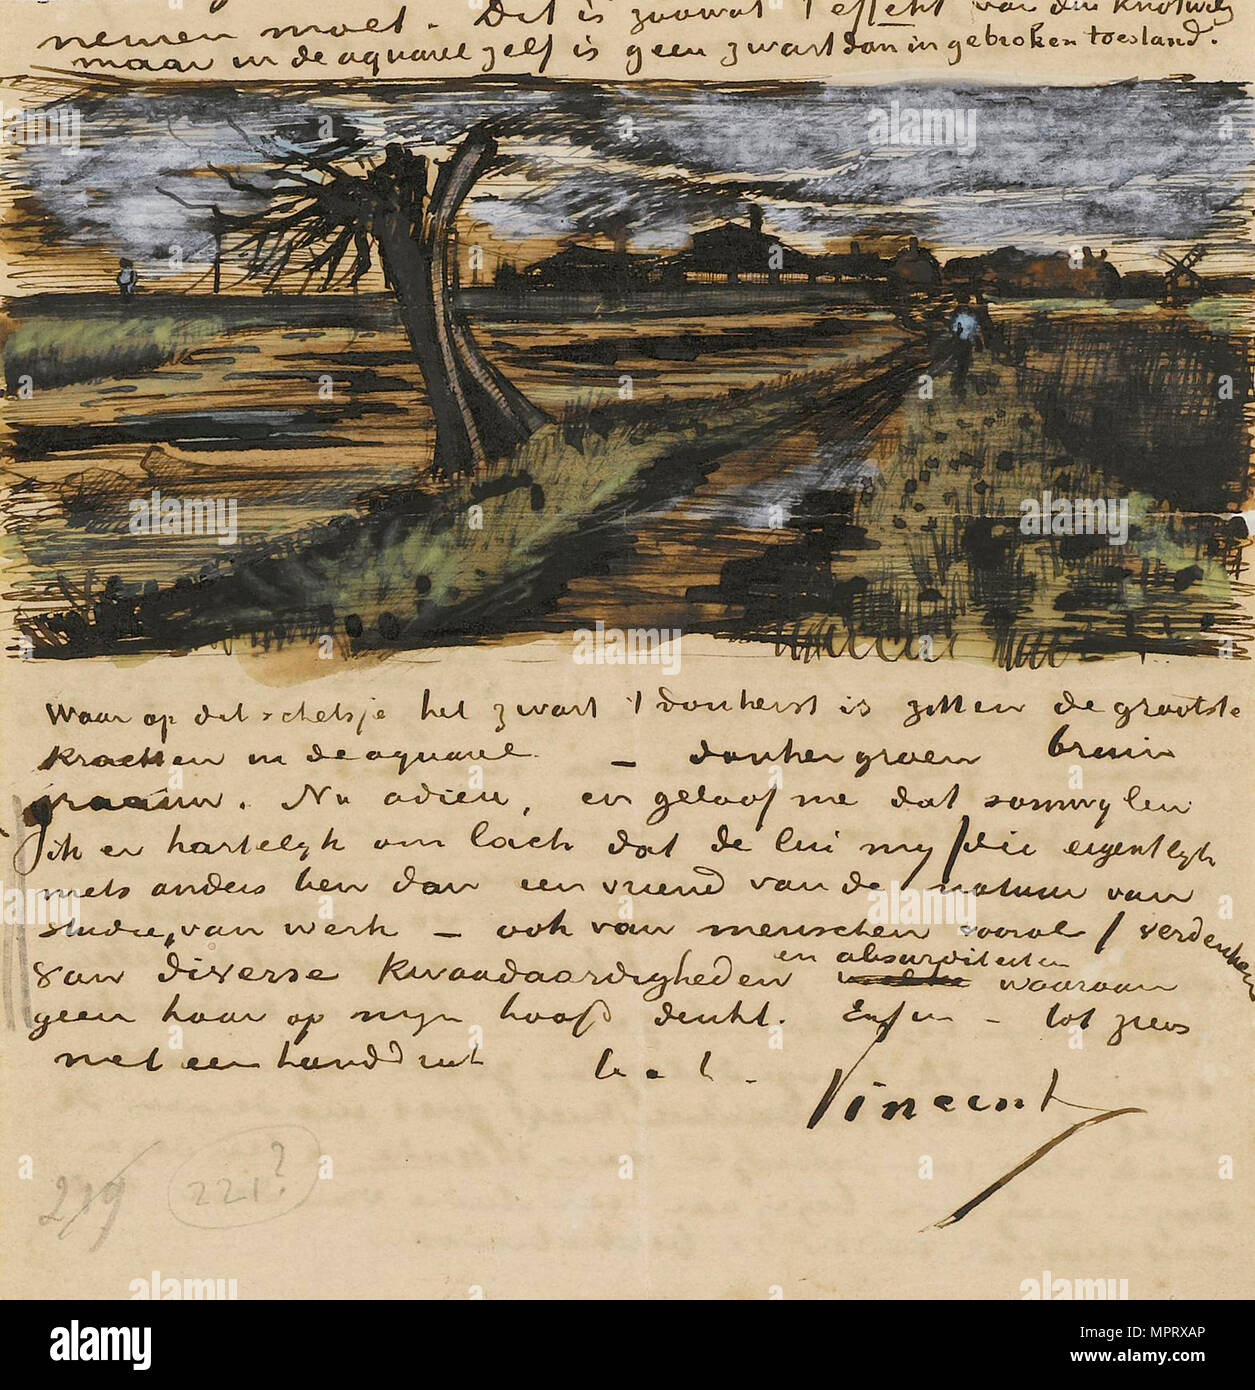 nemen moet. Dit is zoowat 't effekt van den knotwilg
maar in de aquarel zelf is geen zwart dan in gebroken toestand.
Waar op dit schetsje het zwart 't donkerst is zitten de grootste
krachten in de aquarel – donkergroen bruin
graauw. Nu adieu, en geloof me dat somwylen
ik er hartelyk om lach dat de lui my / die eigentlyk
niets anders ben dan een vriend van de natuur van
studie, van werk – ook van menschen vooral / verdenken
van diverse kwaadaardigheden en absurditeiten waaraan
geen haar op myn hoofd denkt. Enfin – tot ziens
met een handdruk
Vincent
219
221?
alamy
alamy stock photo
Image ID: MPRXAP
www.alamy.com